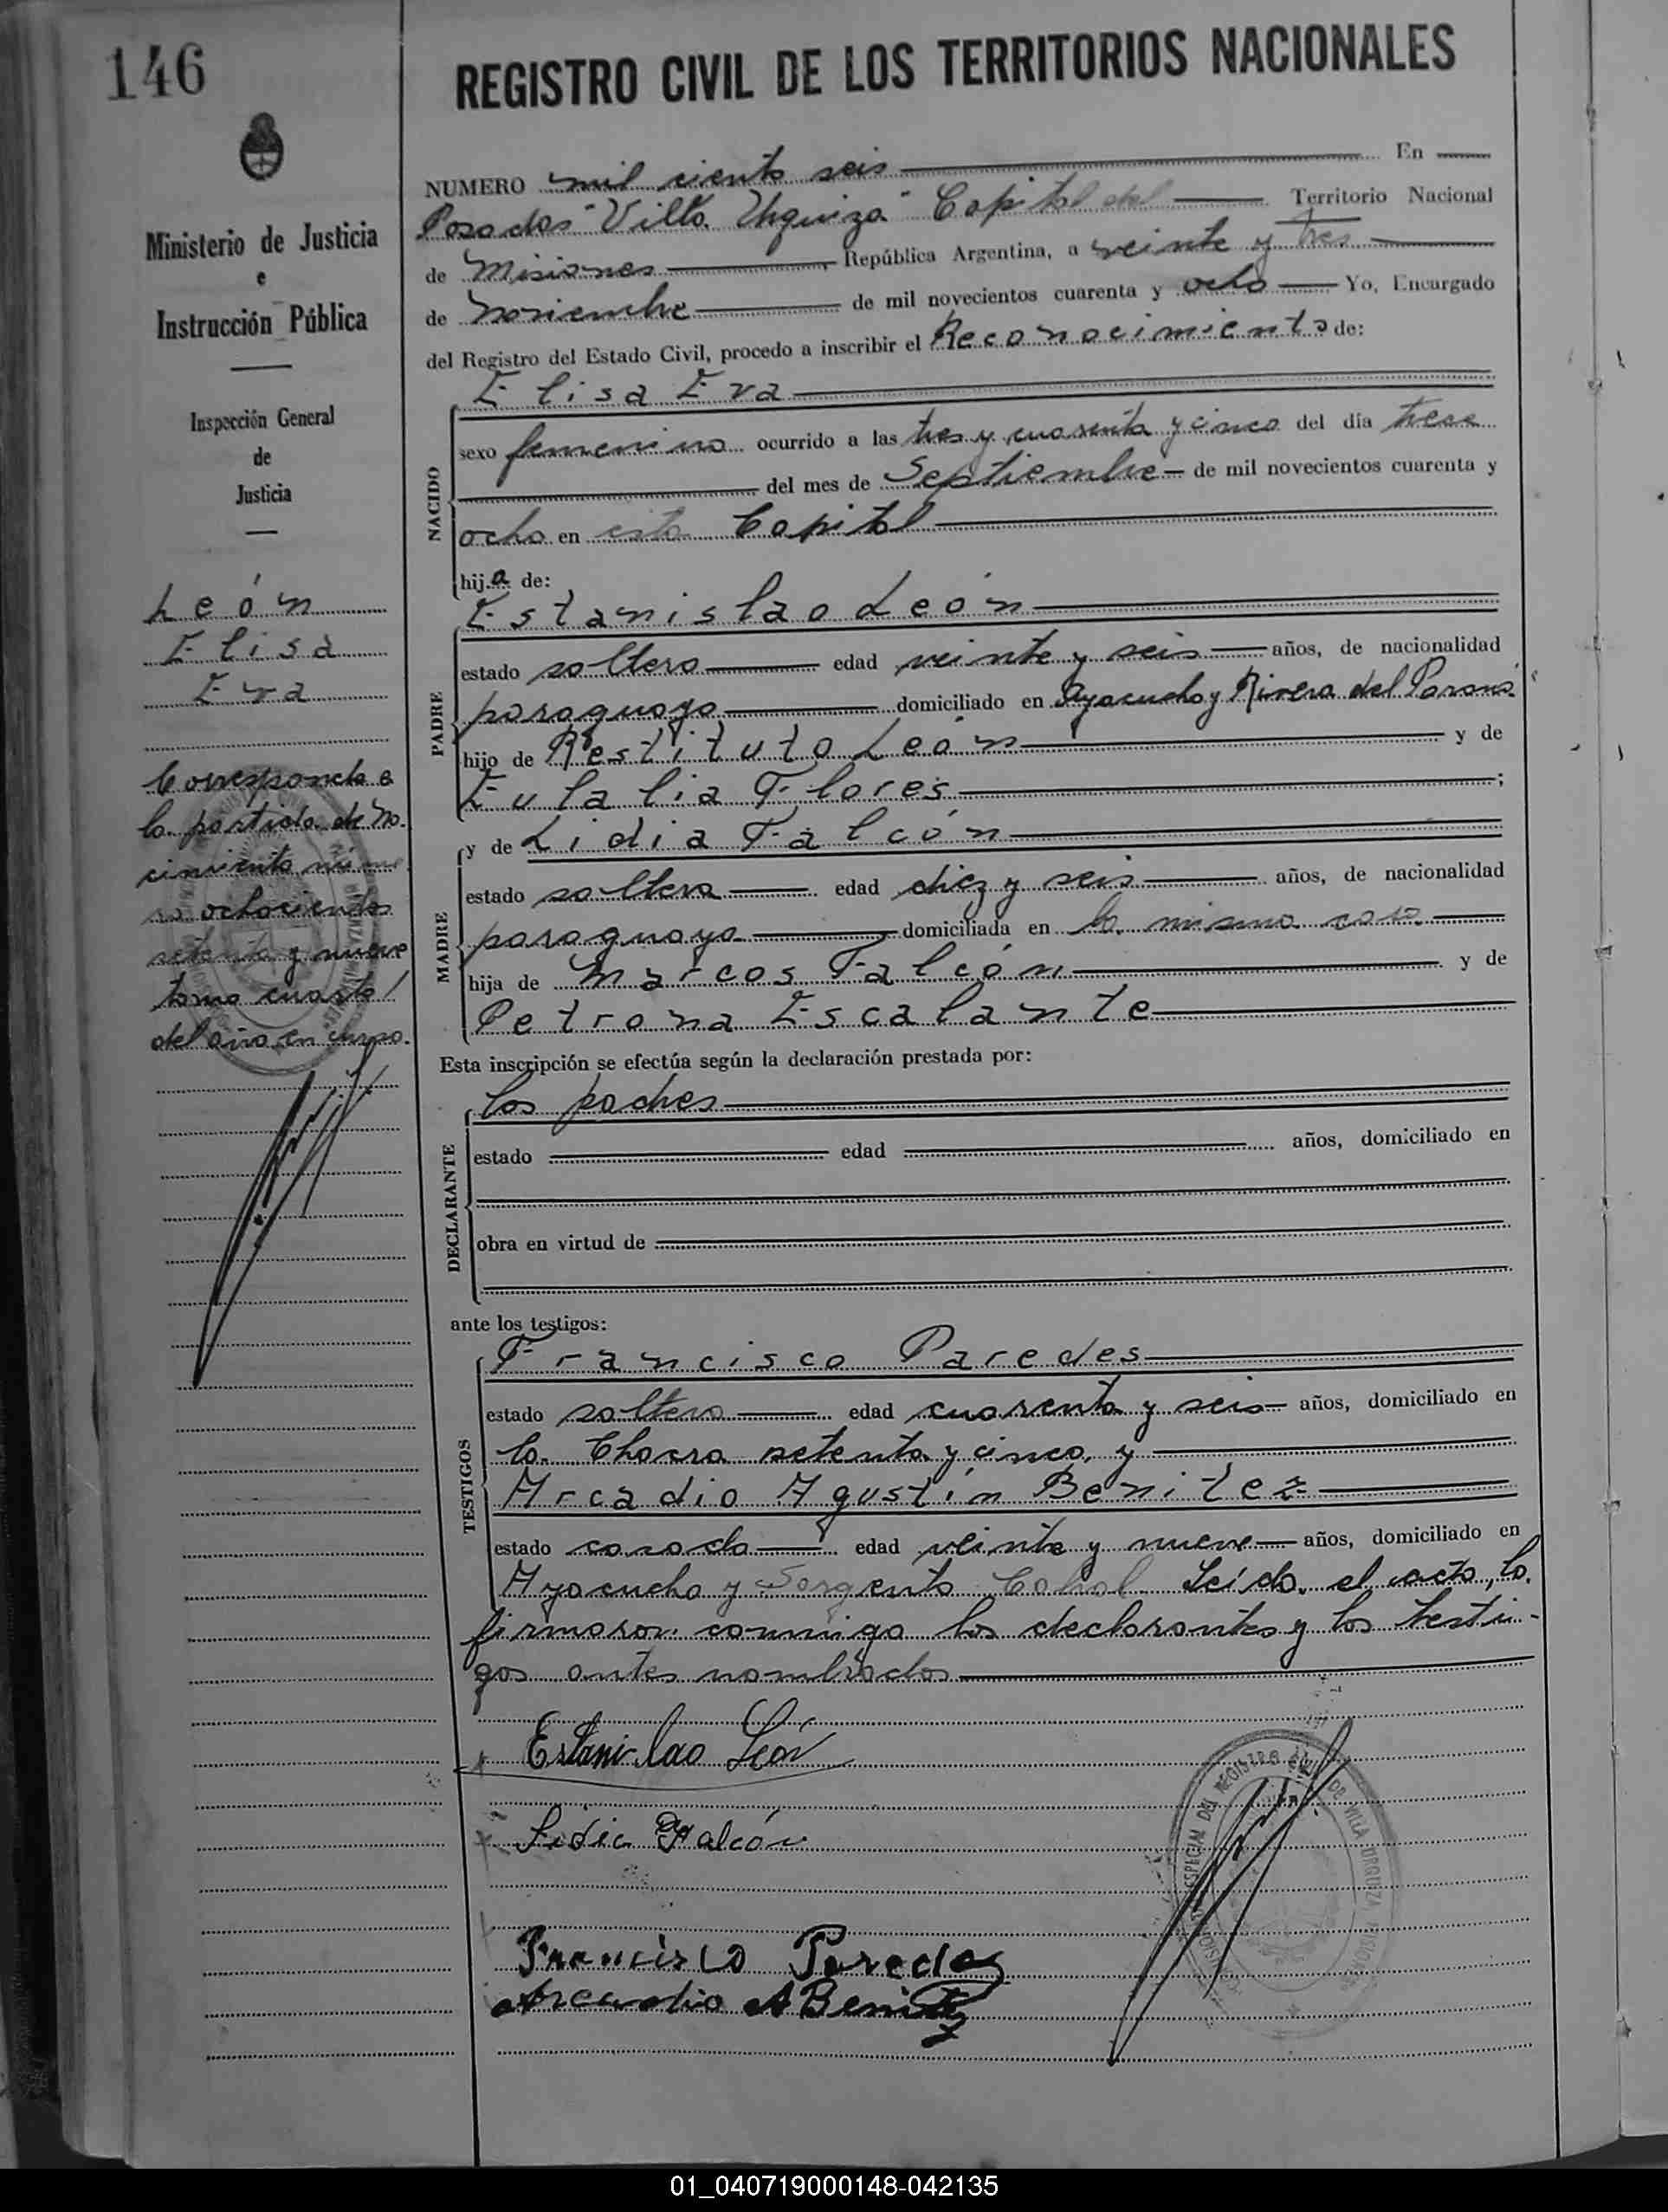 146
REGISTRO CIVIL DE LOS TERRITORIOS NACIONALES
Ministerio de Justicia
e
Instrucción Pública
Inspección General
de
Justicia
León
Elisa
Eva
Corresponde a
la partida de na
cimiento núme
ro ochocientos
setenta y nueve
tomo cuarto
del año en curso.
NUMERO mil ciento seis En
Posadas "Villa Urquiza" Capital del Territorio Nacional
de Misiones República Argentina, a veinte y tres
de noviembre de mil novecientos cuarenta y ocho Yo, Encargado
del Registro del Estado Civil, procedo a inscribir el Reconocimiento de:
NACIDO
Elisa Eva
sexo femenino ocurrido a las tres y cuarenta y cinco del día trece
del mes de Septiembre de mil novecientos cuarenta y
ocho en esta Capital
hija de:
PADRE
Estanislao León
estado soltero edad veinte y seis años, de nacionalidad
paraguaya domiciliado en Ayacucho y Rivera del Paraná
hijo de Restituto León y de
Eulalia Flores ;
MADRE
y de Lidia Falcón
estado soltera edad diez y seis años, de nacionalidad
paraguaya domiciliada en la misma casa
hija de Marcos Falcón y de
Petrona Escalante
Esta inscripción se efectúa según la declaración prestada por:
DECLARANTE
los padres
estado edad años, domiciliado en
obra en virtud de
ante los testigos:
TESTIGOS
Francisco Paredes
estado soltero edad cuarenta y seis años, domiciliado en
la Chacra setenta y cinco, y
Arcadio Agustín Benitez
estado casado edad veinte y nueve años, domiciliado en
Ayacucho y Sargento Cabral. Leída el acta, la
firmaron conmigo los declarantes y los testi-
gos antes nombrados
Estanislao León
Lidia Falcón
Francisco Paredes
Arcadio A Benitez
DEL REGISTRO CIVIL DE VILLA URQUIZA
01_040719000148-042135